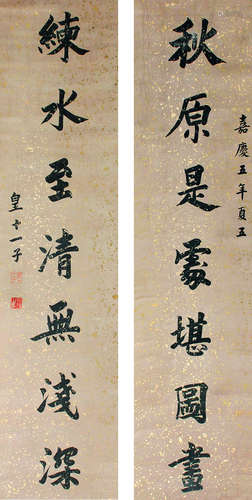 嘉慶五年夏五
秋原是處堪圖畫
練水至清無淺深
皇十一子